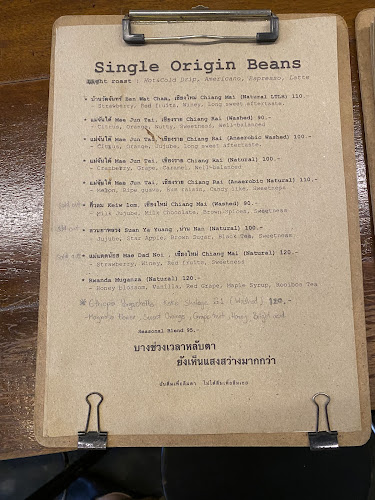 Single Origin Beans
Light roast : Hot&Cold Drip, Americano, Espresso, Latte
บ้านวัดจันทร์ Ban Wat Chan, เชียงใหม่ Chiang Mai (Natural LTLH) 110.-
- Strawberry, Red fruits, Winey, Long sweet aftertaste
แม่จันใต้ Mae Jun Tai, เชียงราย Chiang Rai (Washed) 90.-
- Citrus, Orange, Nutty, Sweetness, Well-balanced
แม่จันใต้ Mae Jun Tai, เชียงราย Chiang Rai (Anaerobic Washed) 100.-
- Citrus, Orange, Jujube, Long sweet aftertaste
แม่จันใต้ Mae Jun Tai, เชียงราย Chiang Rai (Natural) 100.-
- Cranberry, Grape, Caramel, Well-balanced
แม่จันใต้ Mae Jun Tai, เชียงราย Chiang Rai (Anaerobic Natural) 110.-
- Melon, Ripe guava, Rum raisin, Candy like, Sweetness
Sold out Keiw lom, เชียงใหม่ Chiang Mai (Washed) 90.-
- Milk Jujube, Milk Chocolate, Brown Spices, Sweetness
Sold out สวนยาหลวง Suan Ya Yuang ,น่าน Nan (Natural) 100.-
- Jujube, Star Apple, Brown Sugar, Black Tea, Sweetness
Sold out แม่แดดน้อย Mae Dad Noi , เชียงใหม่ Chiang Mai (Natural) 120.-
- Strawberry, Winey, Red fruits, Sweetness
Rwanda Muganza (Natural) 120.-
- Honey blossom, Vanilla, Red Grape, Maple Syrup, Rooibos Tea
Ethiopia Yirgacheffe, G1 (Washed) 120.-
Sweet Orange, Grapefruit, Honey
Seasonal Blend 95.-
บางช่วงเวลาหลับตา
ยังเห็นแสงสว่างมากกว่า